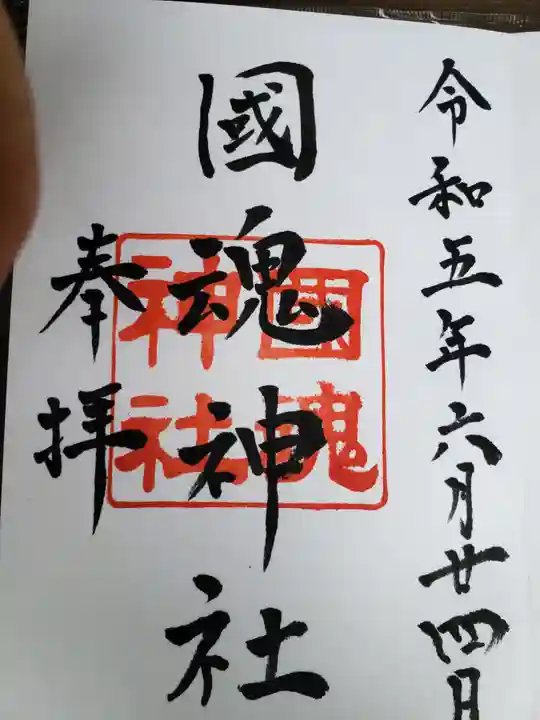 令和五年六月廿四日
國魂神社
國魂
神社
奉拝